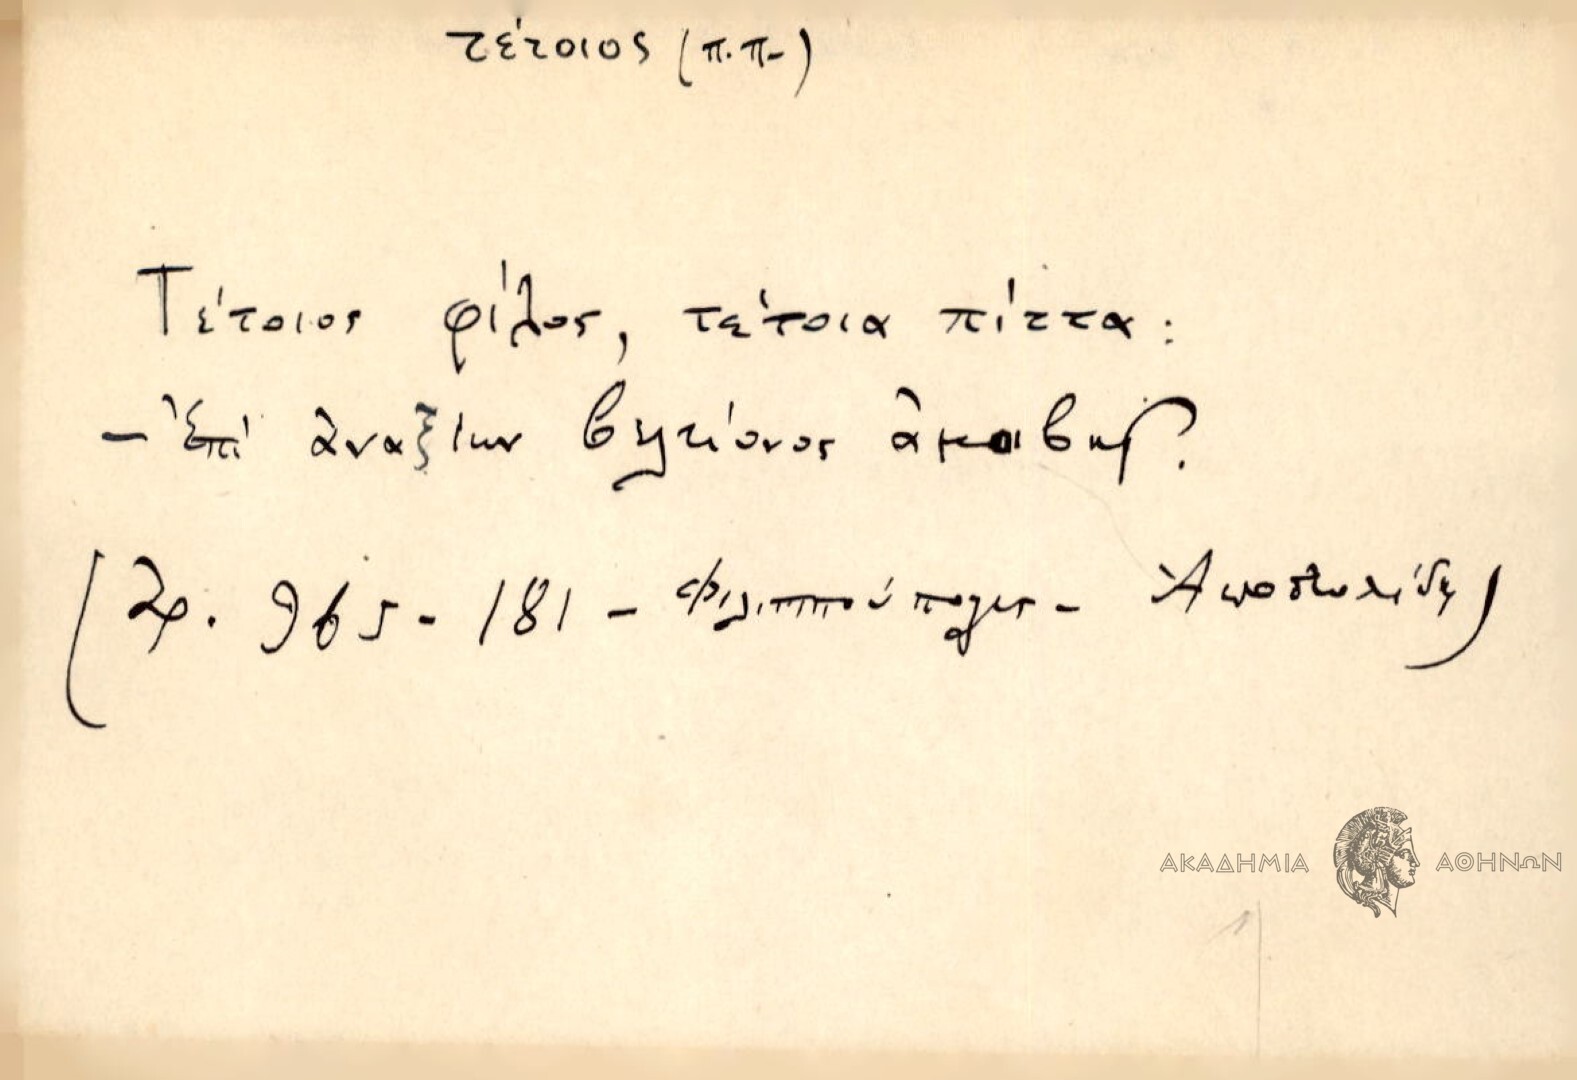 τέτοιος (π.π.)
Τέτοιος φίλος, τέτοια πίττα:
- Ἐπὶ ἀναξίων βελτίονος ἀμοιβῆς.
(Ἀρ. 965 - 181 - Φιλιππούπολις - Ἀποστολίδη)
ΑΚΑΔΗΜΙΑ ΑΘΗΝΩΝ